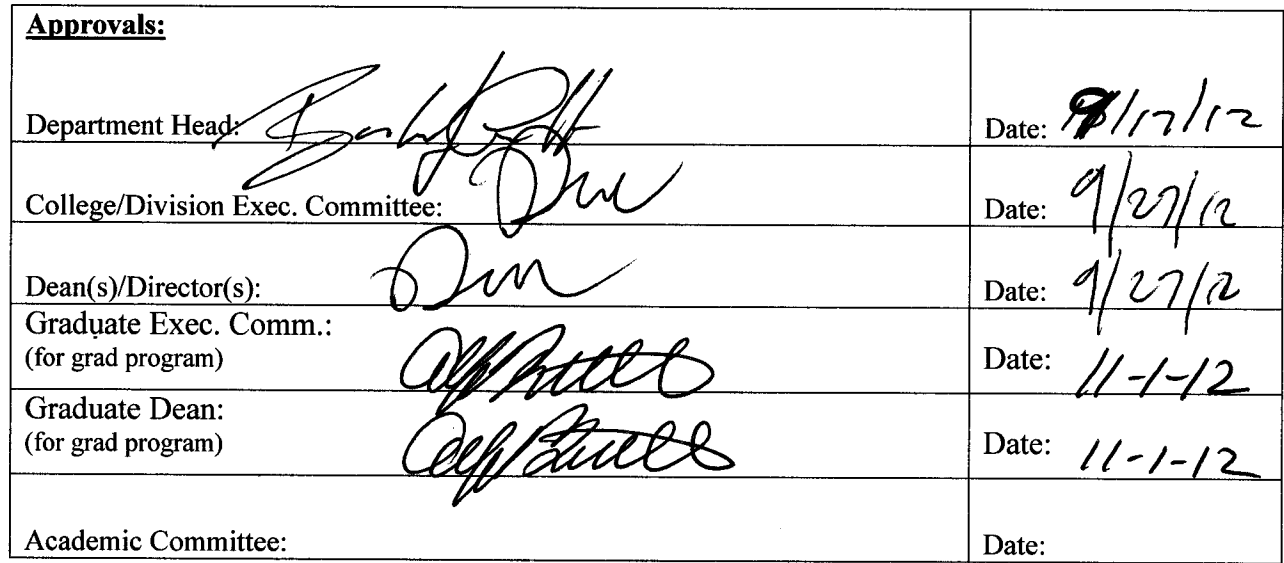 Approvals:
Department Head: Date: 9/17/12
College/Division Exec. Committee: Date: 9/27/12
Dean(s)/Director(s): Date: 9/27/12
Graduate Exec. Comm.:
(for grad program) Date: 11-1-12
Graduate Dean:
(for grad program) Date: 11-1-12
Academic Committee: Date: